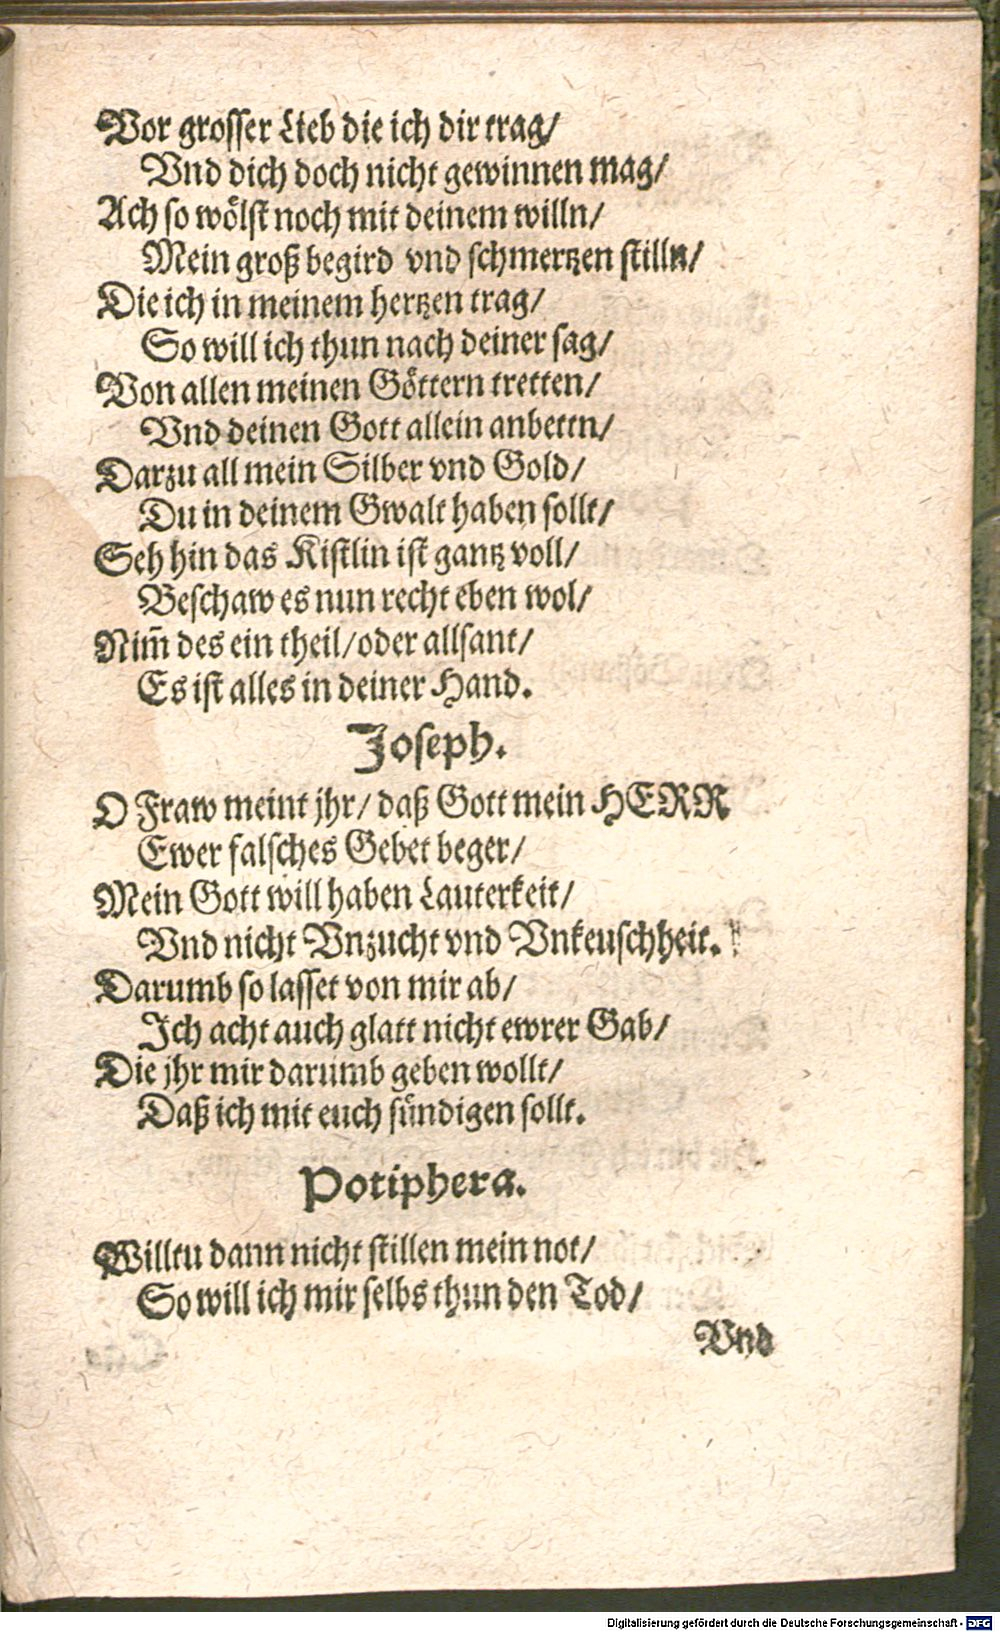 Vor grosser Lieb die ich dir trag/
Vnd dich doch nicht gewinnen mag/
Ach so wölst noch mit deinem willn/
Mein groß begird vnd schmertzen stilln/
Die ich in meinem hertzen trag/
So will ich thun nach deiner sag/
Von allen meinen Göttern tretten/
Vnd deinen Gott allein anbettn/
Darzu all mein Silber vnd Gold/
Du in deinem Gwalt haben sollt/
Seh hin das Kistlin ist gantz voll/
Beschaw es nun recht eben wol/
Nim̄ des ein theil/ oder allsant/
Es ist alles in deiner Hand.
Joseph.
O Fraw meint jhr/ daß Gott mein HERR
Ewer falsches Gebet beger/
Mein Gott will haben Lauterkeit/
Vnd nicht Vnzucht vnd Vnkeuschheit.
Darumb so lasset von mir ab/
Ich acht auch glatt nicht ewrer Gab/
Die jhr mir darumb geben wollt/
Daß ich mit euch sündigen sollt.
Potiphera.
Willtu dann nicht stillen mein not/
So will ich mir selbs thun den Tod/
Vnd
Digitalisierung gefördert durch die Deutsche Forschungsgemeinschaft - DFG